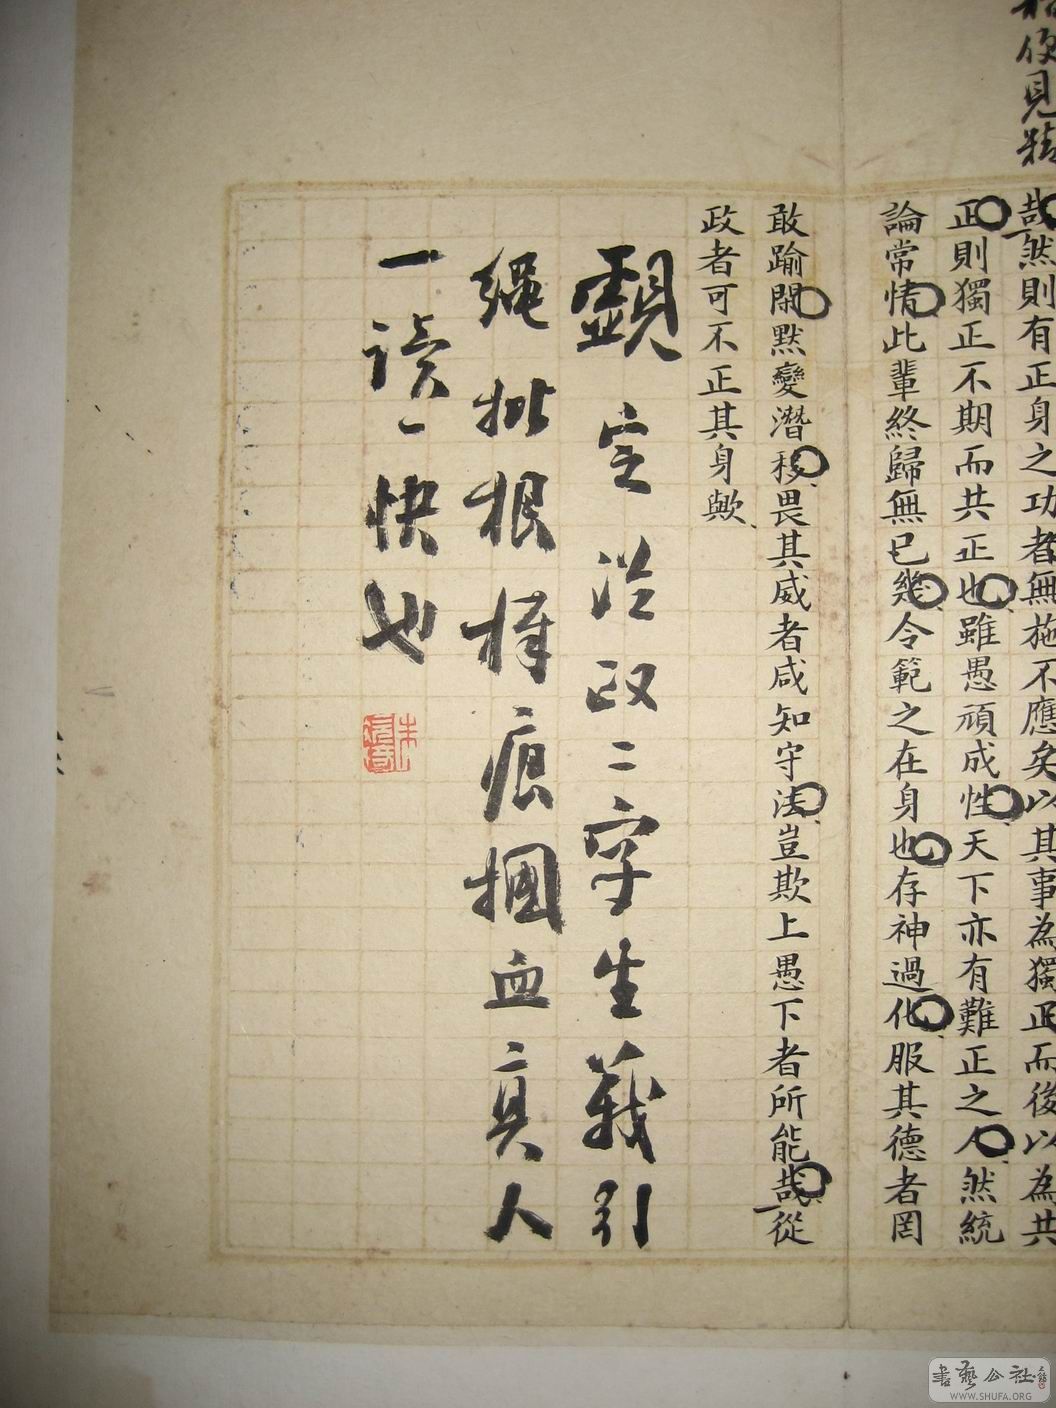 見
哉然則有正身之功者無施不應矣以其事為獨正而後以為共
正則獨正不期而共正也雖愚頑成性天下亦有難正之人然統
論常情此輩終歸無已幾令範之在身也存神過化服其德者罔
敢踰閑默變潛移畏其威者咸知守法豈欺上愚下者所能哉從
政者可不正其身歟
覷定從政二字生義引
繩批根擇痕摑血真人
一讀一快也
書藝公社
WWW.SHUFA.ORG